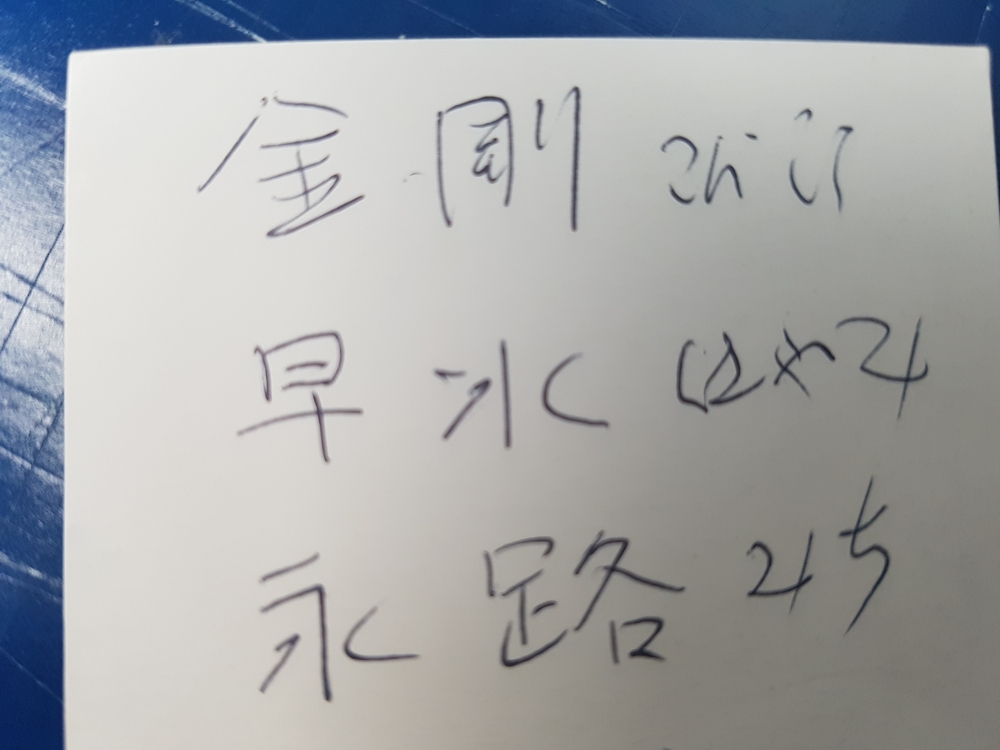 金剛 こんごう
早水 はやみ
永路 みち